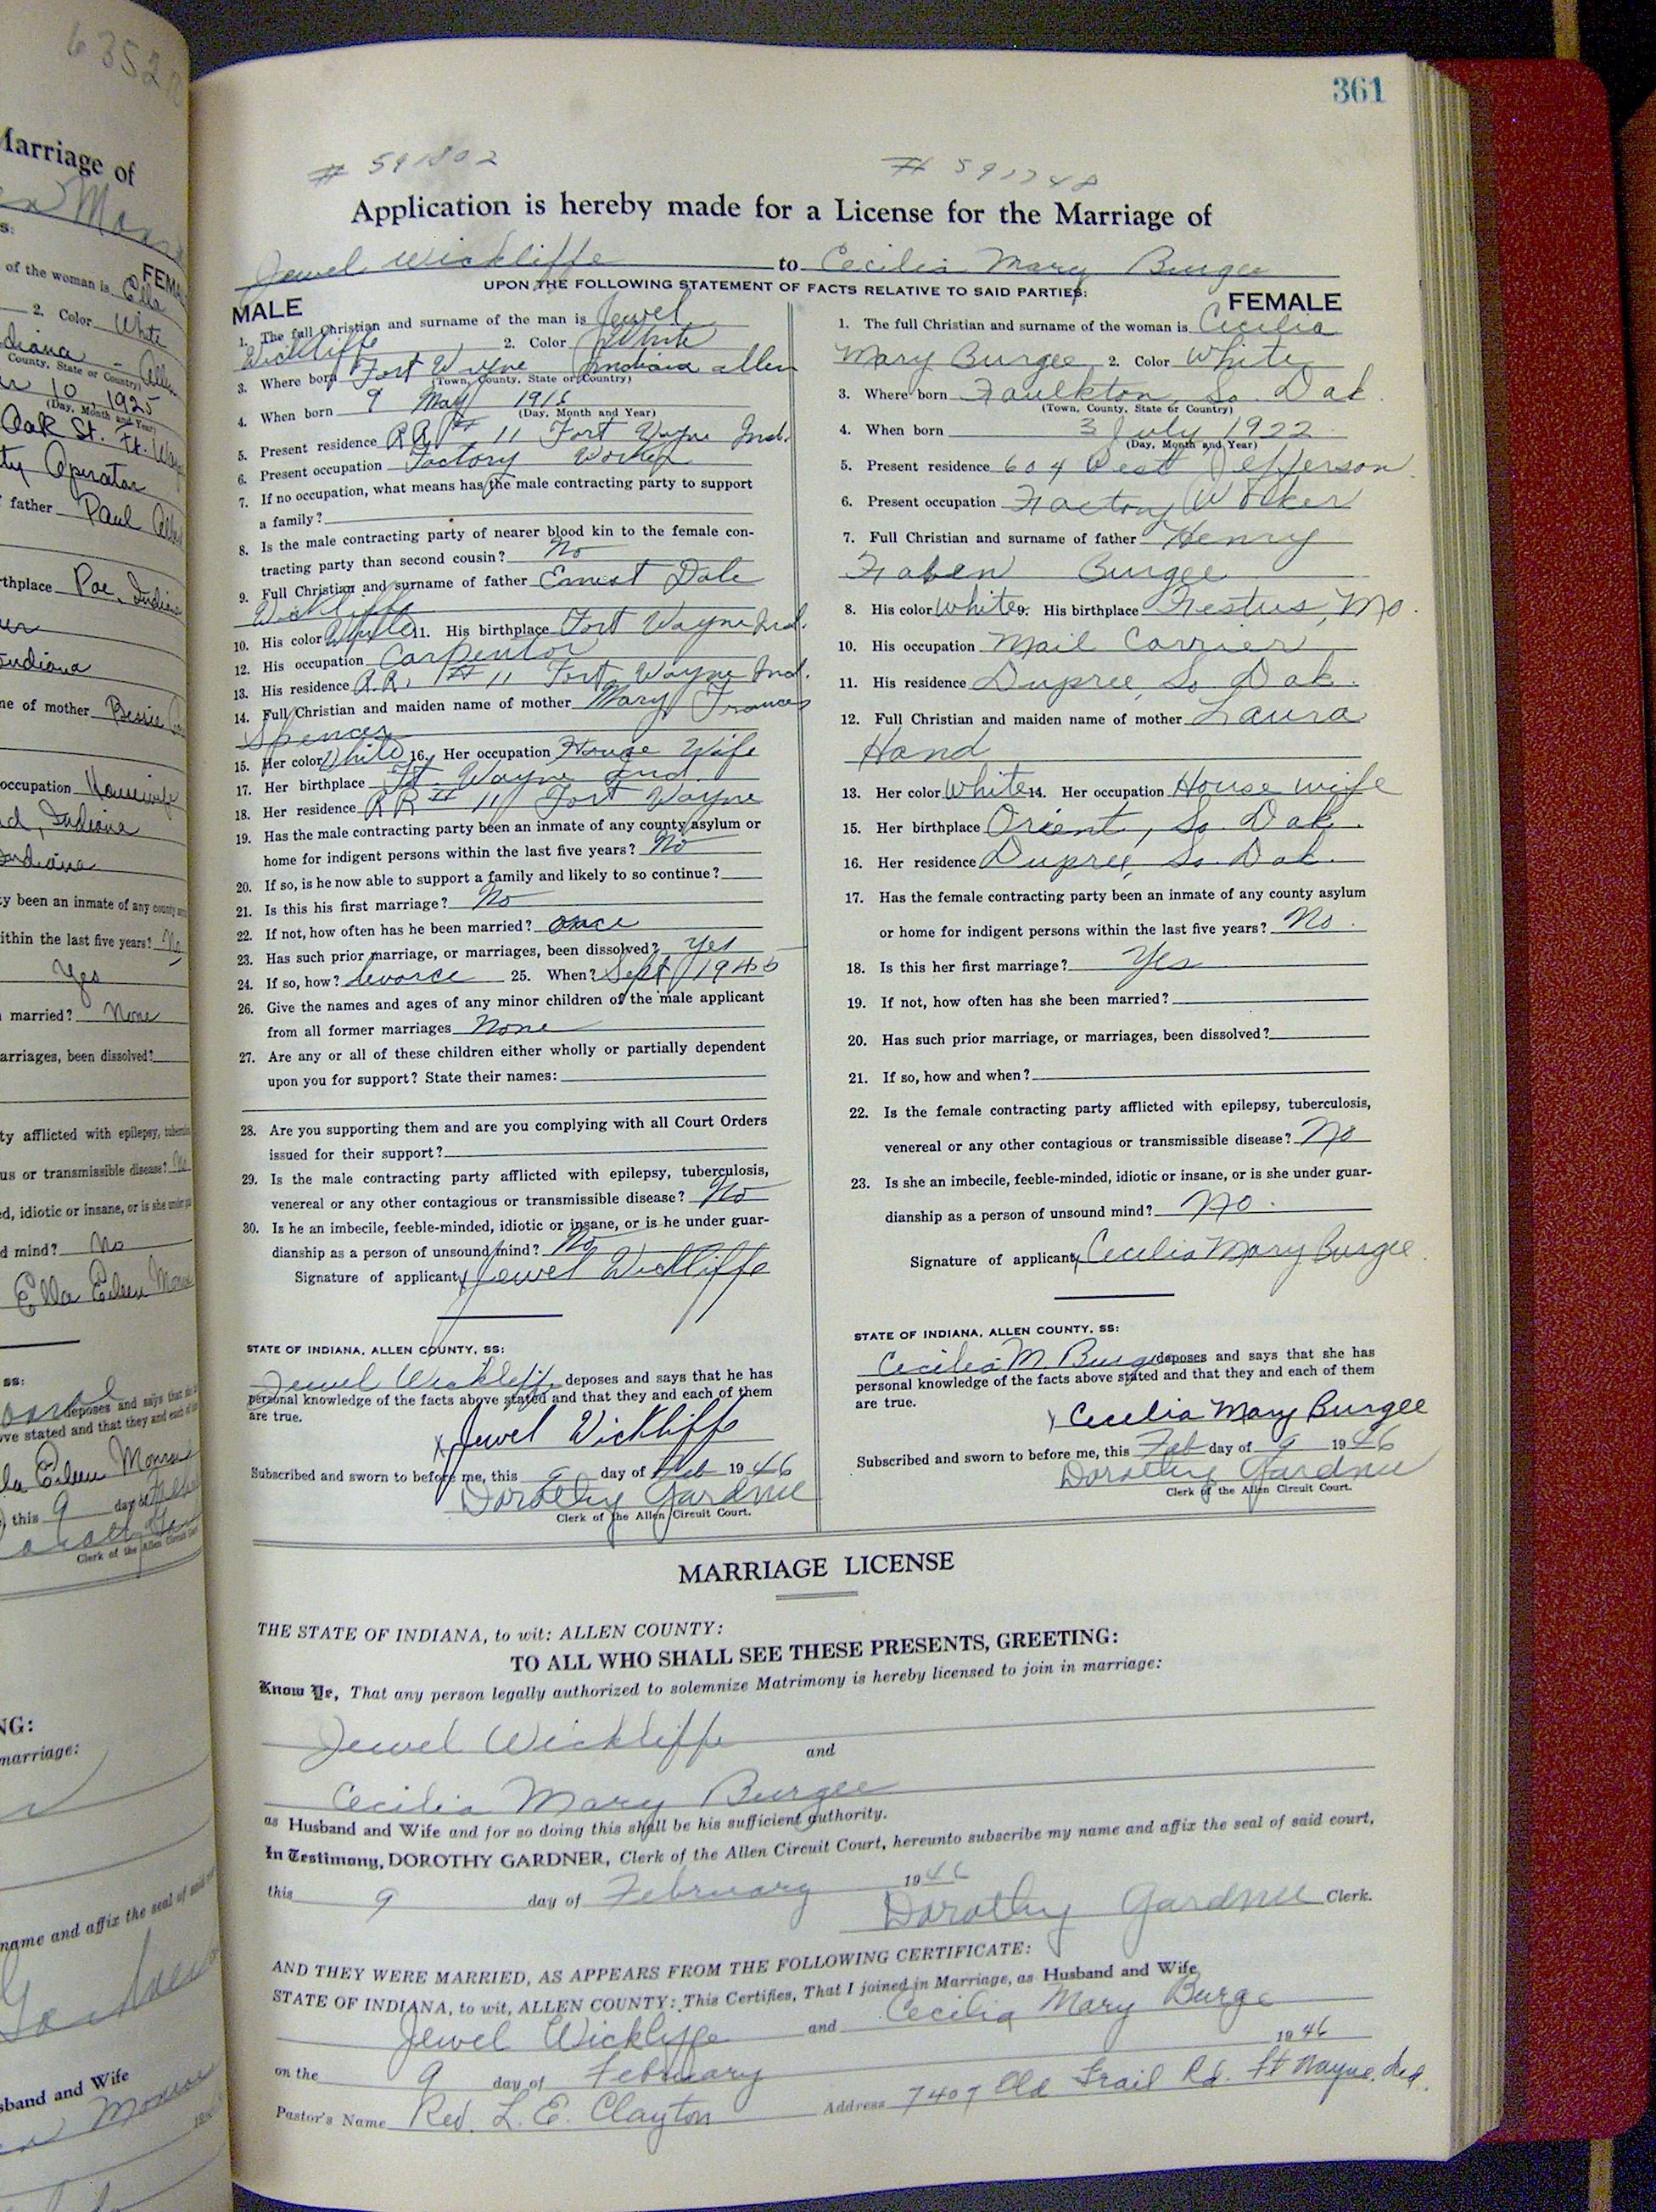 361
# 591802 # 591748
Application is hereby made for a License for the Marriage of
Jewel Wickliffe to Cecilia Mary Burgee
UPON THE FOLLOWING STATEMENT OF FACTS RELATIVE TO SAID PARTIES:
MALE
1. The full Christian and surname of the man is Jewel
Wickliffe 2. Color White
3. Where born Fort Wayne Indiana Allen
(Town, County, State or Country)
4. When born 9 May 1918
(Day, Month and Year)
5. Present residence RR # 11 Fort Wayne Ind.
6. Present occupation Factory Worker
7. If no occupation, what means has the male contracting party to support
a family?
8. Is the male contracting party of nearer blood kin to the female con-
tracting party than second cousin? No
9. Full Christian and surname of father Ernest Dale
Wickliffe
10. His color White 11. His birthplace Fort Wayne Ind.
12. His occupation Carpentor
13. His residence R.R. # 11 Fort Wayne Ind.
14. Full Christian and maiden name of mother Mary Frances
Spencer
15. Her color White 16. Her occupation House Wife
17. Her birthplace Ft Wayne Ind.
18. Her residence RR # 11 Fort Wayne
19. Has the male contracting party been an inmate of any county asylum or
home for indigent persons within the last five years? No
20. If so, is he now able to support a family and likely to so continue?
21. Is this his first marriage? No
22. If not, how often has he been married? once
23. Has such prior marriage, or marriages, been dissolved? Yes
24. If so, how? divorce 25. When? Sept 1945
26. Give the names and ages of any minor children of the male applicant
from all former marriages None
27. Are any or all of these children either wholly or partially dependent
upon you for support? State their names:
28. Are you supporting them and are you complying with all Court Orders
issued for their support?
29. Is the male contracting party afflicted with epilepsy, tuberculosis,
venereal or any other contagious or transmissible disease? No
30. Is he an imbecile, feeble-minded, idiotic or insane, or is he under guar-
dianship as a person of unsound mind? No
Signature of applicant x Jewel Wickliffe
STATE OF INDIANA, ALLEN COUNTY, SS:
Jewel Wickliffe deposes and says that he has
personal knowledge of the facts above stated and that they and each of them
are true.
x Jewel Wickliffe
Subscribed and sworn to before me, this 9 day of Feb 1946
Dorothy Gardner
Clerk of the Allen Circuit Court.
FEMALE
1. The full Christian and surname of the woman is Cecilia
Mary Burgee 2. Color White
3. Where born Faulkton, So. Dak.
(Town, County, State or Country)
4. When born 3 July 1922
(Day, Month and Year)
5. Present residence 604 West Jefferson
6. Present occupation Factory Worker
7. Full Christian and surname of father Henry
Faben Burgee
8. His color White 9. His birthplace Festus, Mo.
10. His occupation Mail Carrier
11. His residence Dupree, So Dak.
12. Full Christian and maiden name of mother Laura
Hand
13. Her color White 14. Her occupation House wife
15. Her birthplace Orient, So. Dak.
16. Her residence Dupree, So. Dak.
17. Has the female contracting party been an inmate of any county asylum
or home for indigent persons within the last five years? No.
18. Is this her first marriage? Yes
19. If not, how often has she been married?
20. Has such prior marriage, or marriages, been dissolved?
21. If so, how and when?
22. Is the female contracting party afflicted with epilepsy, tuberculosis,
venereal or any other contagious or transmissible disease? No
23. Is she an imbecile, feeble-minded, idiotic or insane, or is she under guar-
dianship as a person of unsound mind? No.
Signature of applicant x Cecelia Mary Burgee
STATE OF INDIANA, ALLEN COUNTY, SS:
Cecilia M. Burgee deposes and says that she has
personal knowledge of the facts above stated and that they and each of them
are true.
x Cecelia Mary Burgee
Subscribed and sworn to before me, this Feb day of 9 1946
Dorothy Gardner
Clerk of the Allen Circuit Court.
MARRIAGE LICENSE
THE STATE OF INDIANA, to wit: ALLEN COUNTY:
TO ALL WHO SHALL SEE THESE PRESENTS, GREETING:
Know Ye, That any person legally authorized to solemnize Matrimony is hereby licensed to join in marriage:
Jewel Wickliffe and
Cecilia Mary Burgee
as Husband and Wife and for so doing this shall be his sufficient authority.
In Testimony, DOROTHY GARDNER, Clerk of the Allen Circuit Court, hereunto subscribe my name and affix the seal of said court,
this 9 day of February 1946
Dorothy Gardner Clerk.
AND THEY WERE MARRIED, AS APPEARS FROM THE FOLLOWING CERTIFICATE:
STATE OF INDIANA, to wit, ALLEN COUNTY: This Certifies, That I joined in Marriage, as Husband and Wife
Jewel Wickliffe and Cecilia Mary Burge
on the 9 day of February 1946
Pastor's Name Rev. L. E. Clayton Address 7407 Old Trail Rd. Ft Wayne, Ind.